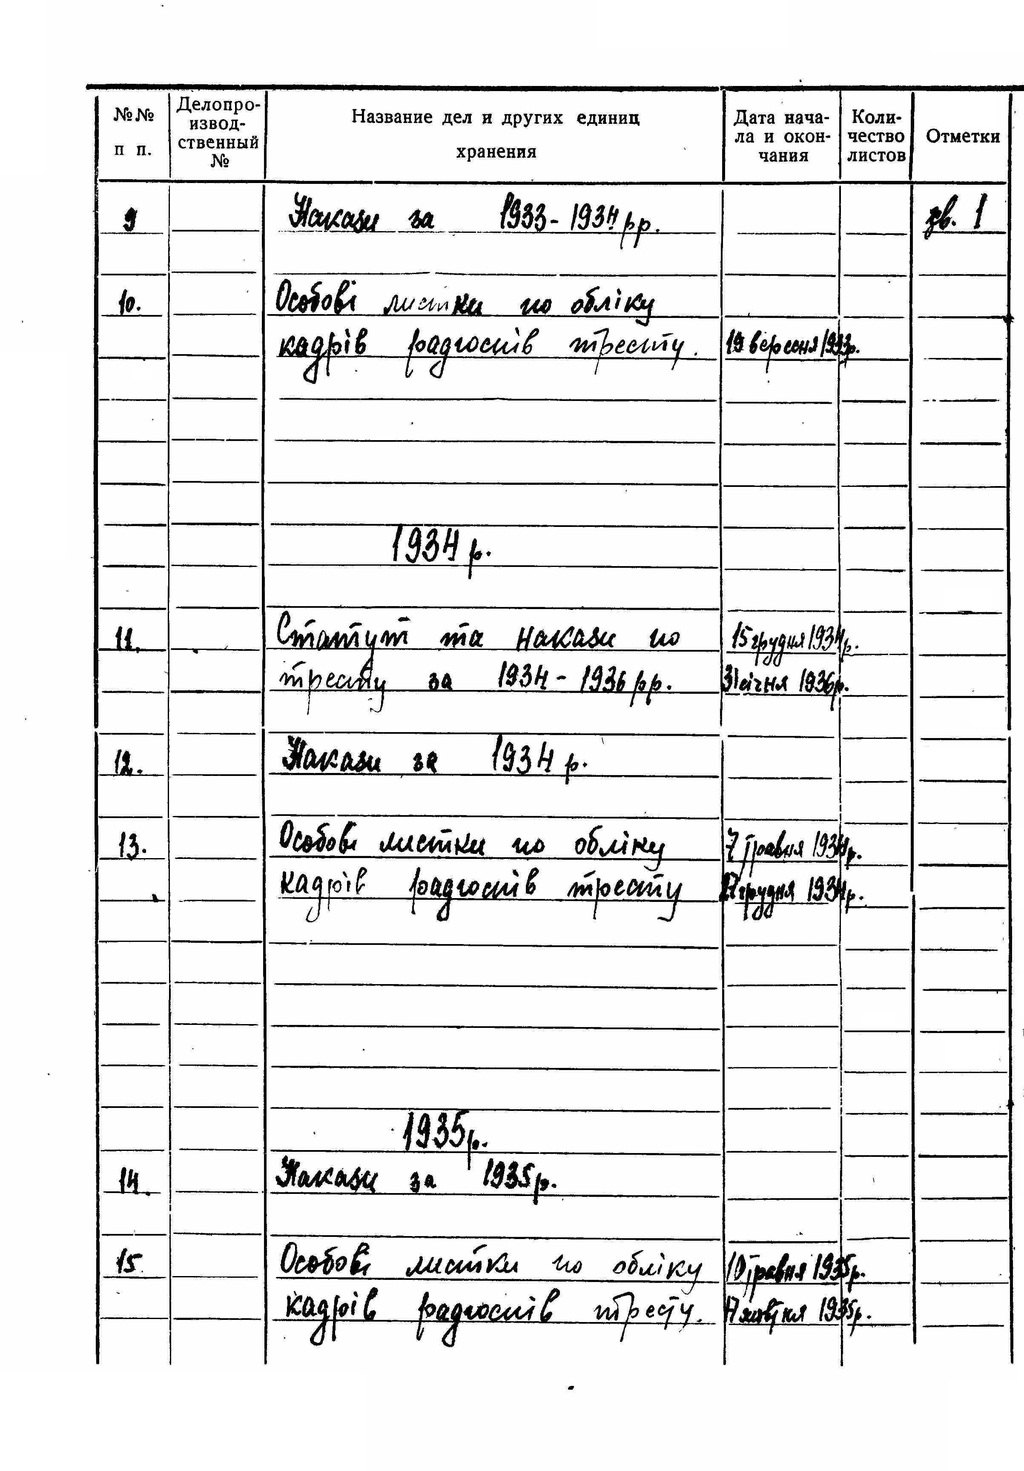 №№ п п.
Делопроизводственный №
Название дел и других единиц хранения
Дата начала и окончания
Количество листов
Отметки
9 Накази за 1933-1934 рр. зв. 1
10. Особові листки по обліку
кадрів радгоспів тресту. 19 вересня 1933р.
1934 р.
11. Статут та накази по 15 грудня 1934р.
тресту за 1934-1936 рр. 31 січня 1936р.
12. Накази за 1934 р.
13. Особові листки по обліку 7 травня 1934р.
кадрів радгоспів тресту 27 грудня 1934р.
1935р.
14. Накази за 1935р.
15 Особові листки по обліку 10 травня 1935р.
кадрів радгоспів тресту. 17 жовтня 1935р.